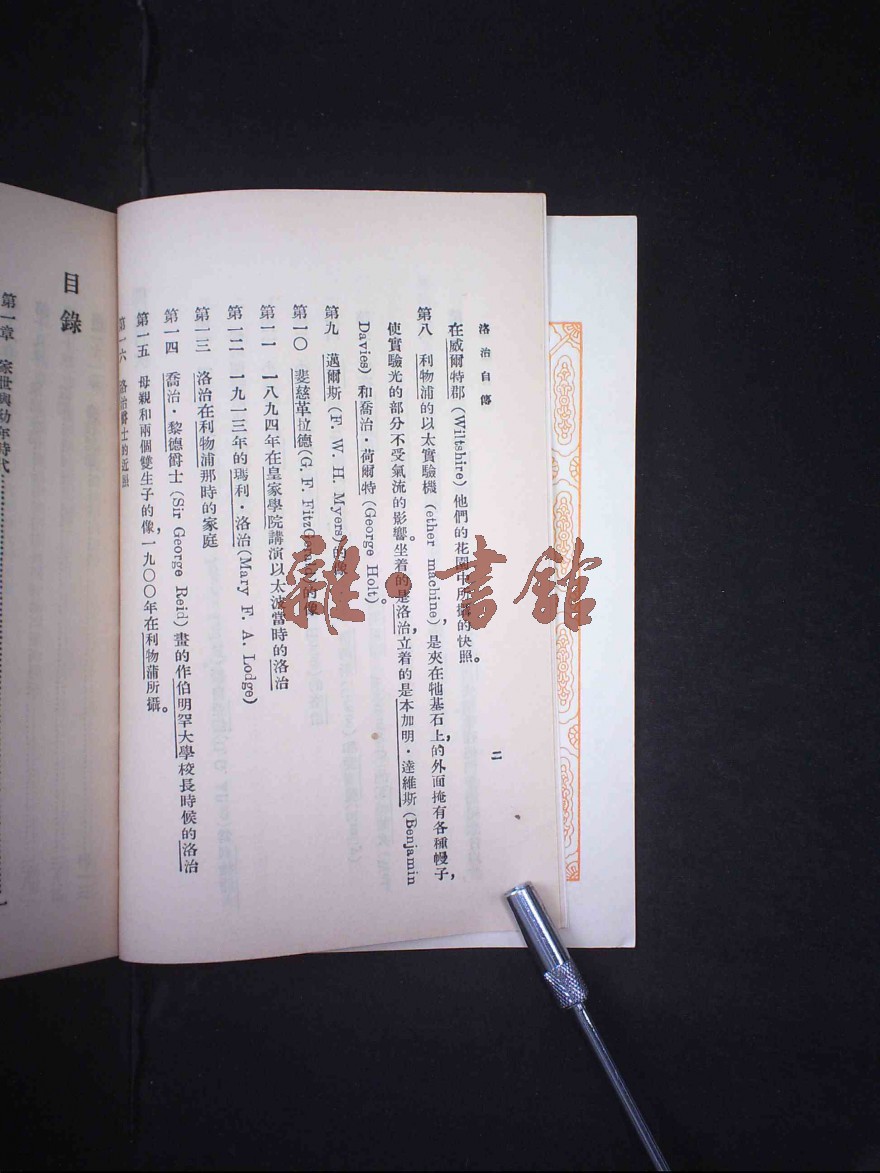 洛治自傳
二
在威爾特郡 (Wiltshire) 他們的花園中所攝的快照。
第八 利物浦的以太實驗機 (ether machine)，是夾在牠基石上，的外面掩有各種幔子，
使實驗光的部分不受氣流的影響。坐着的是洛治，立着的是本加明·達維斯 (Benjamin
Davies) 和喬治·荷爾特 (George Holt)。
第九 邁爾斯 (F. W. H. Myers) 的像
第一〇 斐慈革拉德 (G. F. FitzGerald) 的像
第一一 一八九四年在皇家學院講演以太波當時的洛治
第一二 一九一三年的瑪利·洛治 (Mary F. A. Lodge)
第一三 洛治在利物浦那時的家庭
第一四 喬治·黎德爵士 (Sir George Reid) 畫的作伯明罕大學校長時候的洛治
第一五 母親和兩個雙生子的像，一九〇〇年在利物蒲所攝。
第一六 洛治爵士的近照
目錄
第一章 家世與幼年時代
雜·書館